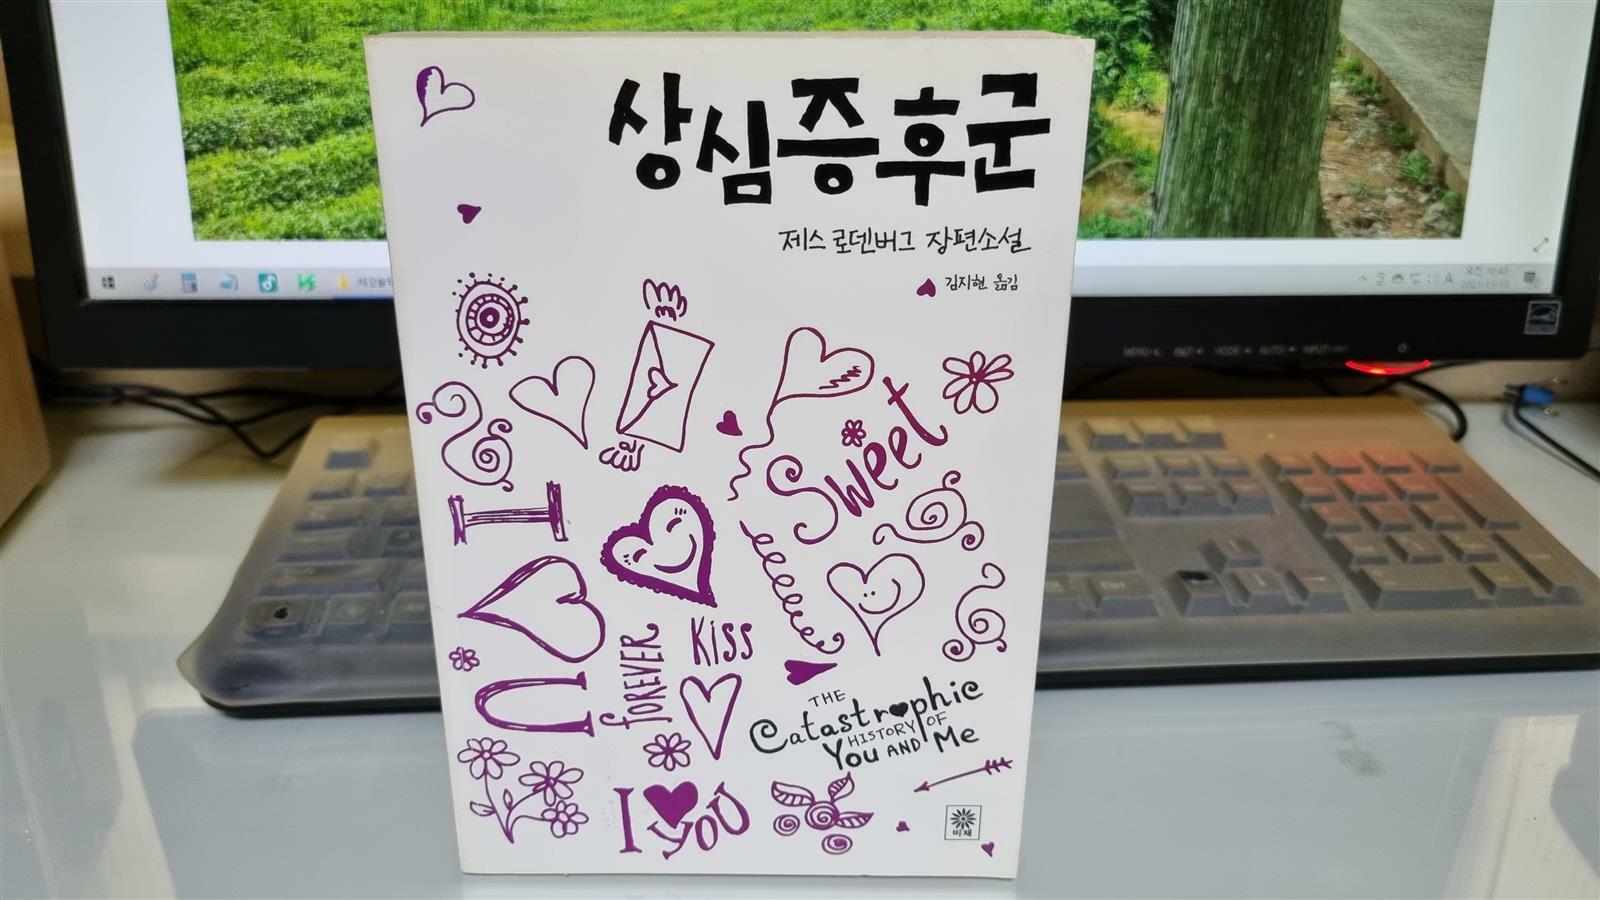 상심증후군
제스 로덴버그 장편소설
김지현 옮김
Sweet
I
U
FOREVER
Kiss
THE
Catastrophic
HISTORY OF
You AND Me
I YOU
비채
MENU
Ctrl